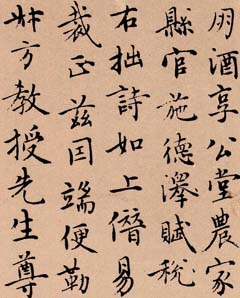 朋酒享公堂農家
縣官施德澤賦稅
右拙詩如上僭易
裁正茲因端便勒
方教授先生尊